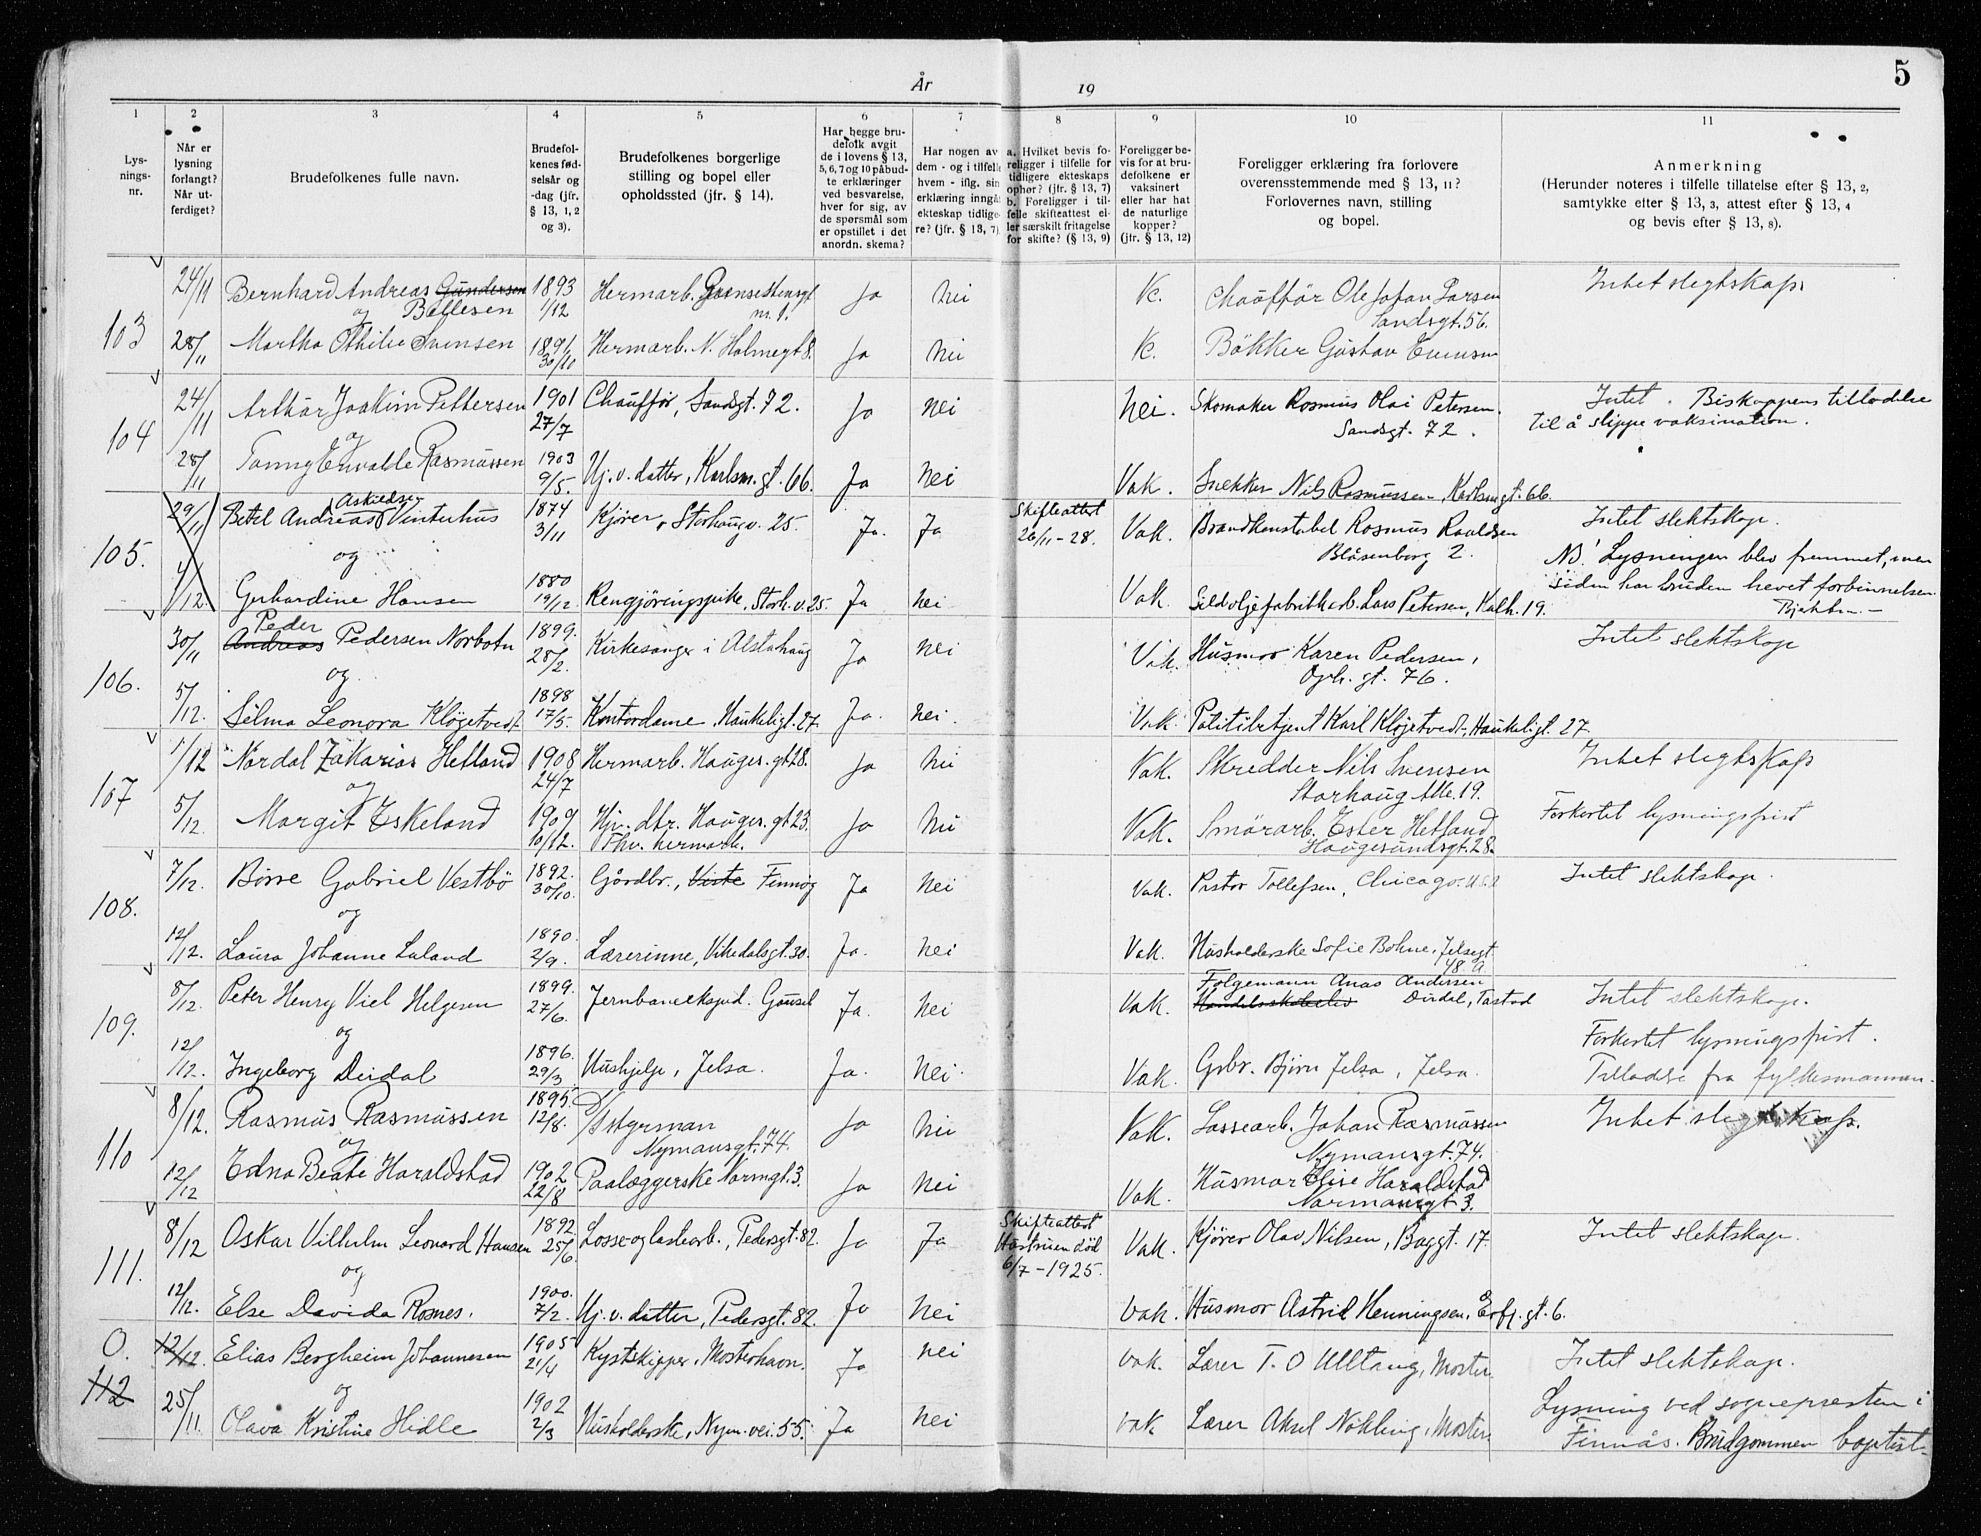 5
År 19
1 2 3 4 5 6 7 8 9 10 11
Lys-
nings-
nr.
Når er
lysning
forlangt?
Når ut-
ferdiget?
Brudefolkenes fulle navn.
Brudefol-
kenes fød-
selsår og
-dag (jfr.
§ 13, 1, 2
og 3).
Brudefolkenes borgerlige
stilling og bopel eller
opholdssted (jfr. § 14).
Har begge bru-
defolk avgit
de i lovens § 13,
5, 6, 7 og 10 påbud-
te erklæringer
ved besvarelse,
hver for sig, av
de spørsmål som
er opstillet i det
anordn. skema?
Har nogen av
dem - og i tilfelle
hvem - iflg. sin
erklæring inngåt
ekteskap tidlige-
re? (jfr. § 13, 7)
a. Hvilket bevis fo-
religger i tilfelle for
tidligere ekteskaps
ophør? (jfr. § 13, 7)
b. Foreligger i til-
felle skifteattest el-
ler særskilt fritagelse
for skifte? (§ 13, 9)
Foreligger be-
vis for at bru-
defolkene er
vaksinert
eller har hat
de naturlige
kopper?
(jfr. § 13, 12)
Foreligger erklæring fra forlovere
overensstemmende med § 13, 11?
Forlovernes navn, stilling
og bopel.
Anmerkning
(Herunder noteres i tilfelle tillatelse efter § 13, 2,
samtykke efter § 13, 3, attest efter § 13, 4
og bevis efter § 13, 8).
103 24/11 Bernhard Andreas Gundersen 1893 Hermarb. Grensestensgt Ja Nei Vc. Chauffør Ole Johan Larsen Intet slegtskap
og Bellesen 1/12 nr. 1. Sandsgt. 56.
28/11 Martha Othilie Svensen 1891 30/10 Hermarb. N. Holmegt 8. Ja Nei Vc. Bökker Gustav Svensen
104 24/11 Arthur Joakim Pettersen 1901 27/7 Chauffør, Sandsgt. 72. Ja Nei Nei. Skomaker Rasmus Olai Petersen. Intet. Biskoppens tilladelse
og Sandsgt. 72. til å slippe vaksination.
28/11 Rasmussen 1903 9/5. Hj. v. datter, Karlsm. gt. 66. Ja Nei Vak. Snekker Nils Rasmussen, Karlsmgt. 66.
105. 29/11 Betel Andreas Askildsen Vinterhus 1874 3/11 Kjører, Storhaugv. 25. Ja. Ja Skifteattest 26/11-28. Vak. Brandkonstabel Rasmus Roaldsen Intet slektskap.
og Blåsenborg 2. NB! Lysningen blev fremmet, men
4/12. Gerhardine Hansen 1880 19/12. Rengjøringspike, Storh. v. 25. Ja Nei Vak. Sildoljefabrikkarb. Lars Petersen, Kalh. 19. siden har bruden hevet forbinnelsen.
106. 30/11 Andreas Peder Pedersen Norbotn 1899. 28/2. Kirkesanger i Alstahaug Ja Nei Vak. Husmor Karen Pedersen, Intet slektskap
og gt. 76.
5/12. Selma Leonora Kløgetvedt 1898 17/5. Kontordame, Haukeligt. 27. Ja. Nei. Vak. Politibetjent Karl Kløgetvedt, Haukeligt. 27
107 1/12 Nordal Zakarias Hetland 1908 24/7 Hermarb. Hauges. gt 28. Ja Nei Vak. Skredder Nils Svensen Intet slegtskap
og Storhaug Alle. 19.
5/12. Margit Eskeland 1909 10/12. Hjv. dtr. Hauges. gt 23. Ja Nei Vak. Smörarb. Ester Hetland Forkortet lysningsfrist
Thv. hermarb. Haugesundsgt. 28.
108. 7/12. Børre Gabriel Vestbö 1892. 30/10. Gårdbr., Viste Finnøy Ja Nei Vak. Pastor Tollefsen, Chicago. U.S.A Intet slektskap.
og
12/12. Laura Johanne Luland 1890. 2/9. Lærerinne, Vikedalsgt. 30. Ja. Nei Vak. Husholderske Sofie Bohne, Jelsegt 48 A
109. 8/12. Peter Henry Viel Helgesen 1899. 27/6. Jernbaneeksped. Gausel Ja. Nei Vak. Handelsskoleelev Følgemann Anas Andersen Dirdal, Tastad Intet slektskap.
og Forkortet lysningsfrist.
12/12. Ingeborg Deidal 1896. 29/3 Hushjelp, Jelsa. Ja. Nei. Vak. Grbr. Bjørn Jelsa, Jelsa. Tilladelse fra fylkesmannen.
110 8/12. Rasmus Rasmussen 1895. 12/8. Ja Nei Vak. Lossearb. Johan Rasmussen Intet slegtskap.
og Nymansgt. 74. Nymansgt. 74.
12/12 Edna Beate Haraldstad 1902 22/8 Paalæggerske Normgt. 3. Ja Nei Vak. Husmor Elise Haraldstad
Normansgt 3.
111. 8/12 Oskar Vilhelm Leonard Hansen 1892 25/6. Losse og lastearb., Pedersgt. 82. Ja Ja Skifteattest Hustruen død 6/7-1925. Vak. Kjører Olav Nilsen, Baggt. 17. Intet slektskap.
og
12/12. Else Davida Rosnes. 1900. 7/2. Hj. v. datter, Pedersgt. 82. Ja Nei Vak. Husmor Astrid Henningsen, Erfj. gt. 6.
0. 12/12. Elias Bergheim Johannesen 1905 21/4 Kystskipper, Mosterhavn. Ja Nei Vak. Lærer T. O Ulltang, Moster Intet slektskap.
112 og Lysning ved sognepresten i
25/11. Olava Kristine Hidle 1902 2/3 Husholderske, Nym. vei. 55. Ja Nei Vak Lærer Aksel Nökling, Moster. Finnås. Brudgommen baptist.